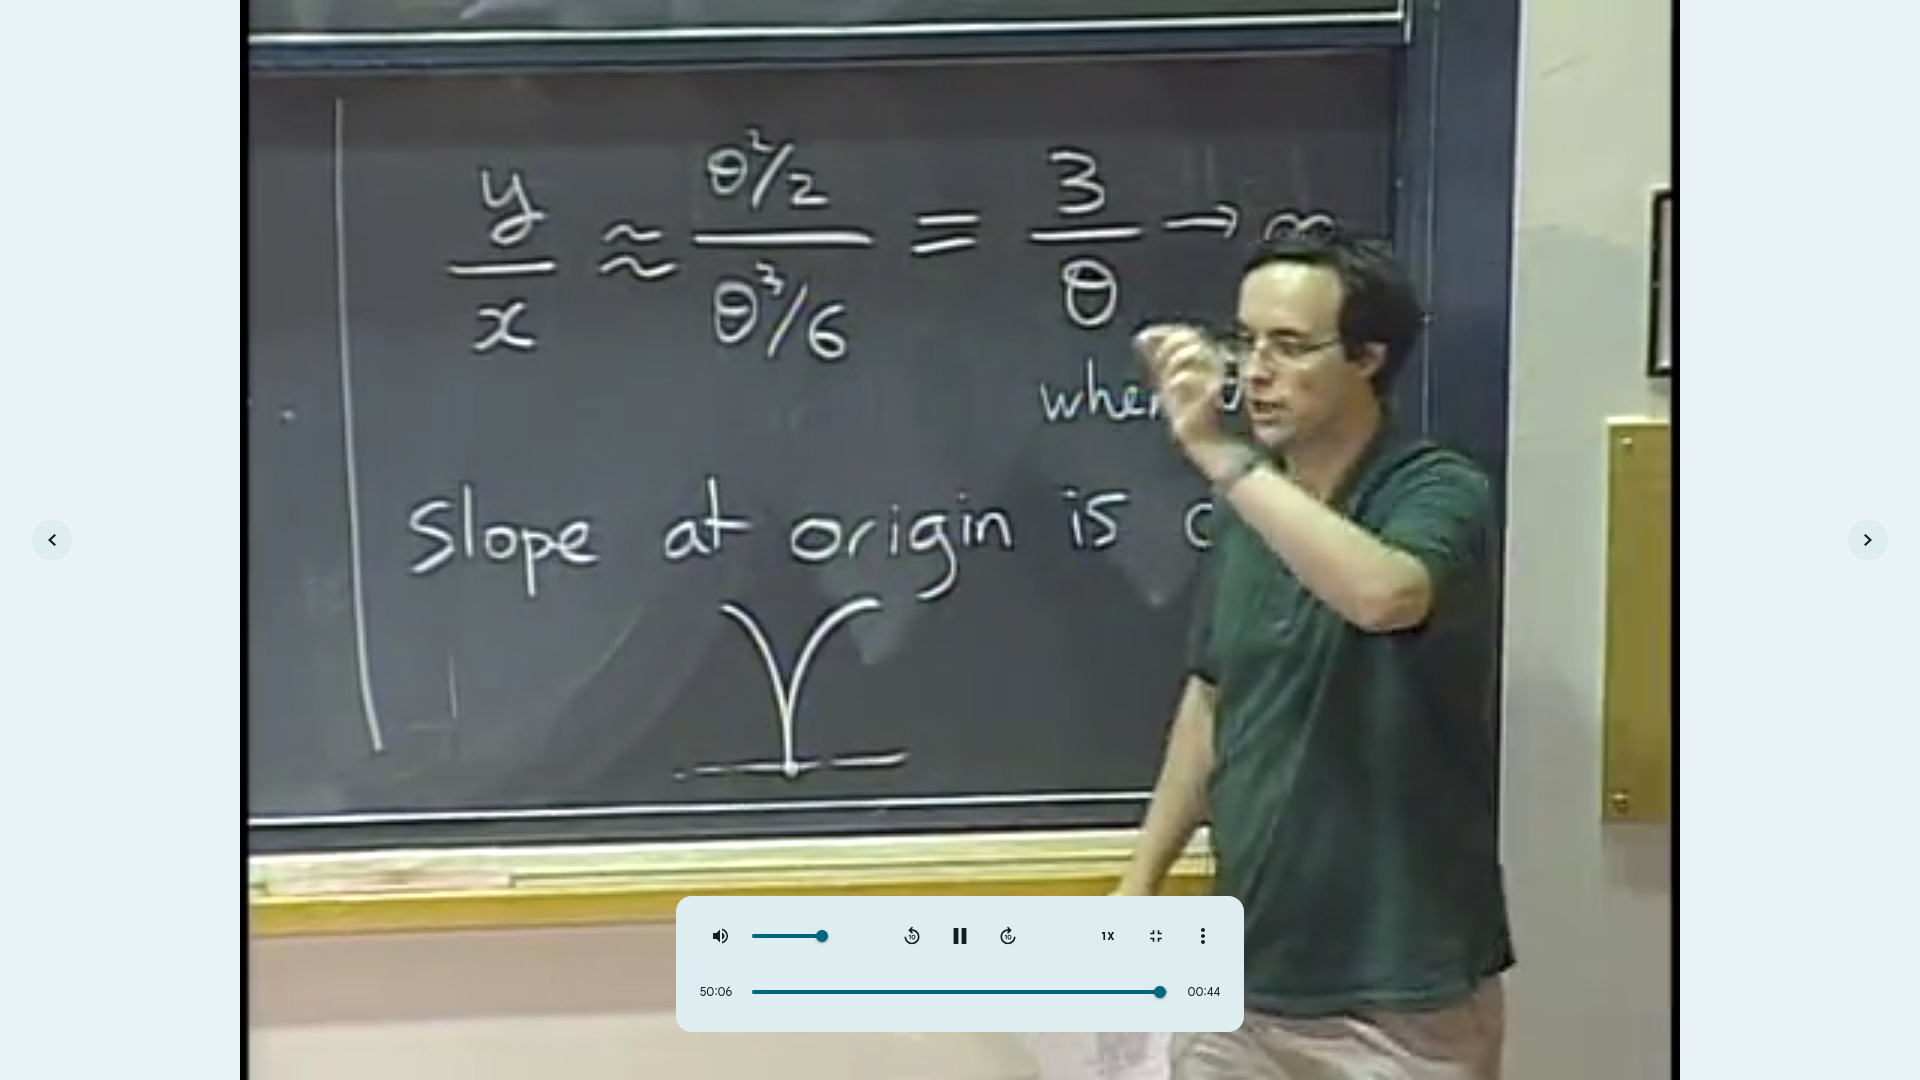 y/x ≈ (θ²/2)/(θ³/6) = 3/θ → ∞
when θ
Slope at origin is
10
10
1X
50:06
00:44